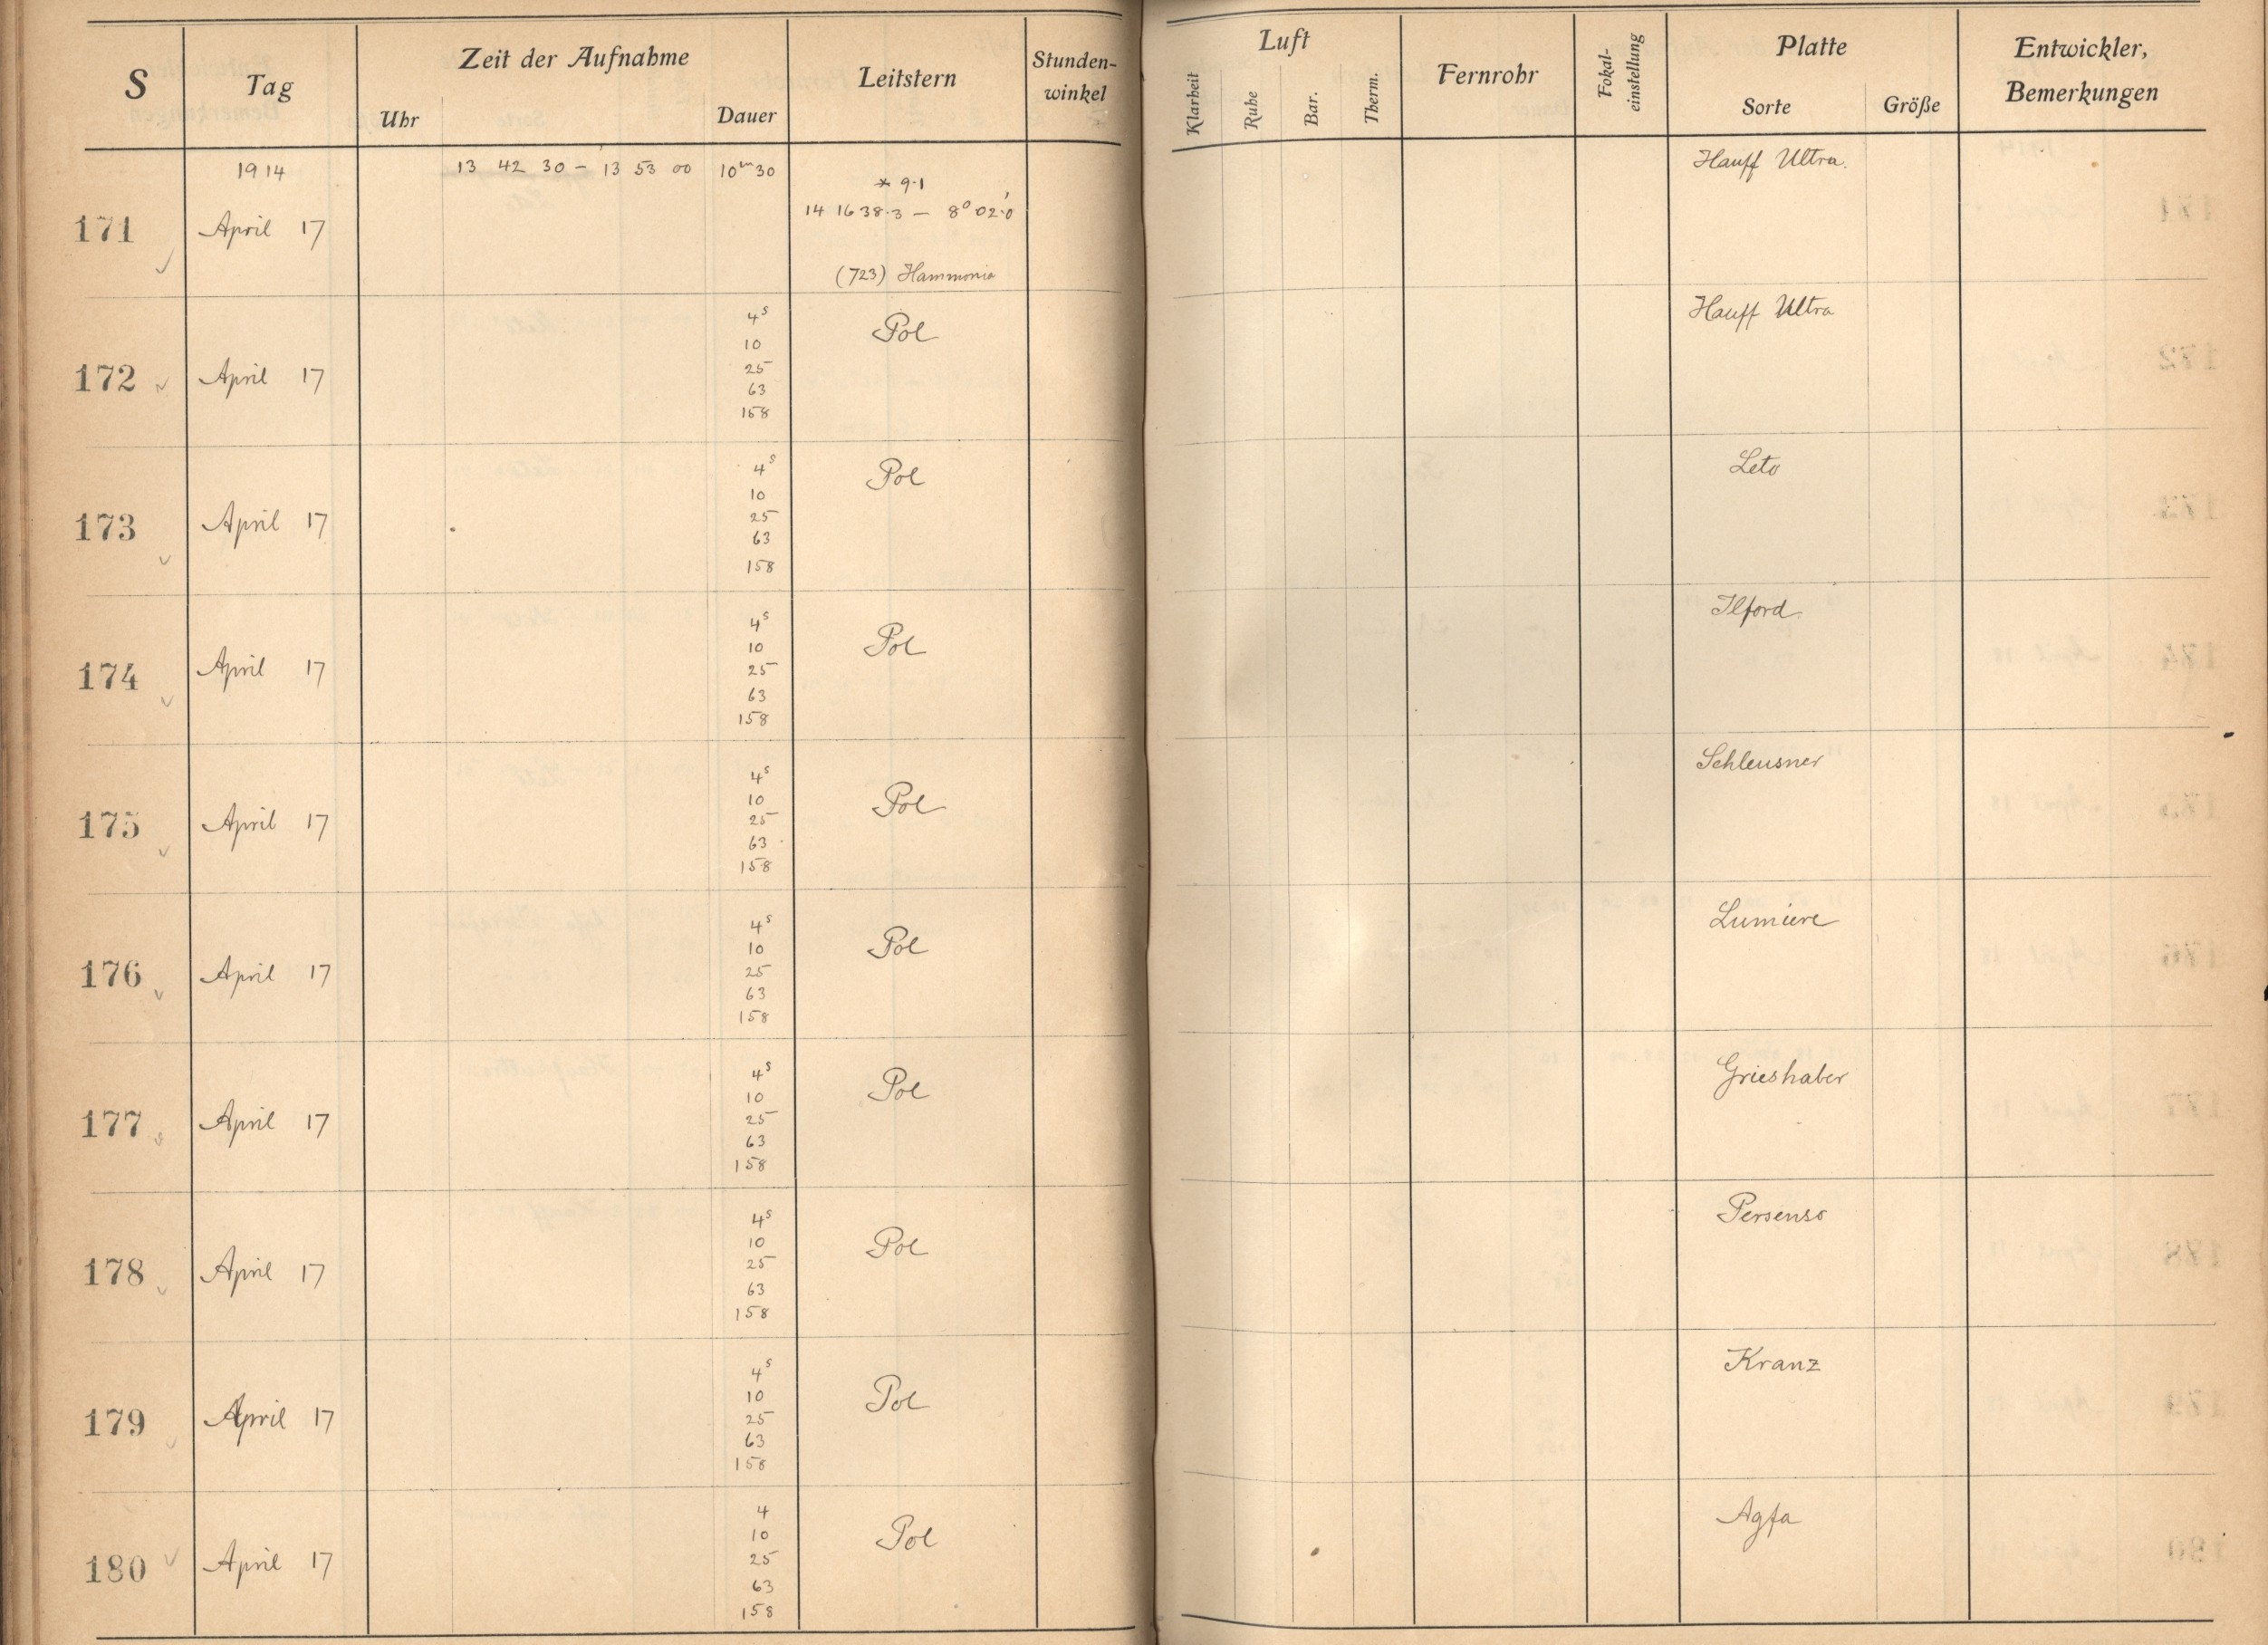 S Tag Zeit der Aufnahme Leitstern Stunden-winkel Luft Fernrohr Fokal-einstellung Platte Entwickler, Bemerkungen
Uhr Dauer Klarheit Ruhe Bar. Therm. Sorte Größe
1914 13 42 30 – 13 53 00 10ᵐ30 Hauff Ultra.
* 9.1
14 16 38.3 – 8° 02.'0
171 April 17
(723) Hammonia
4ˢ Pol Hauff Ultra
10
25
172 April 17
63
158
4ˢ Pol Leto
10
25
173 April 17
63
158
4ˢ Pol Ilford
10
25
174 April 17
63
158
4ˢ Pol Schleusner
10
25
175 April 17
63
158
4ˢ Pol Lumiere
10
25
176 April 17
63
158
4ˢ Pol Grieshaber
10
25
177 April 17
63
158
4ˢ Pol Persenso
10
25
178 April 17
63
158
4ˢ Pol Kranz
10
25
179 April 17
63
158
4 Pol Agfa
10
25
180 April 17
63
158